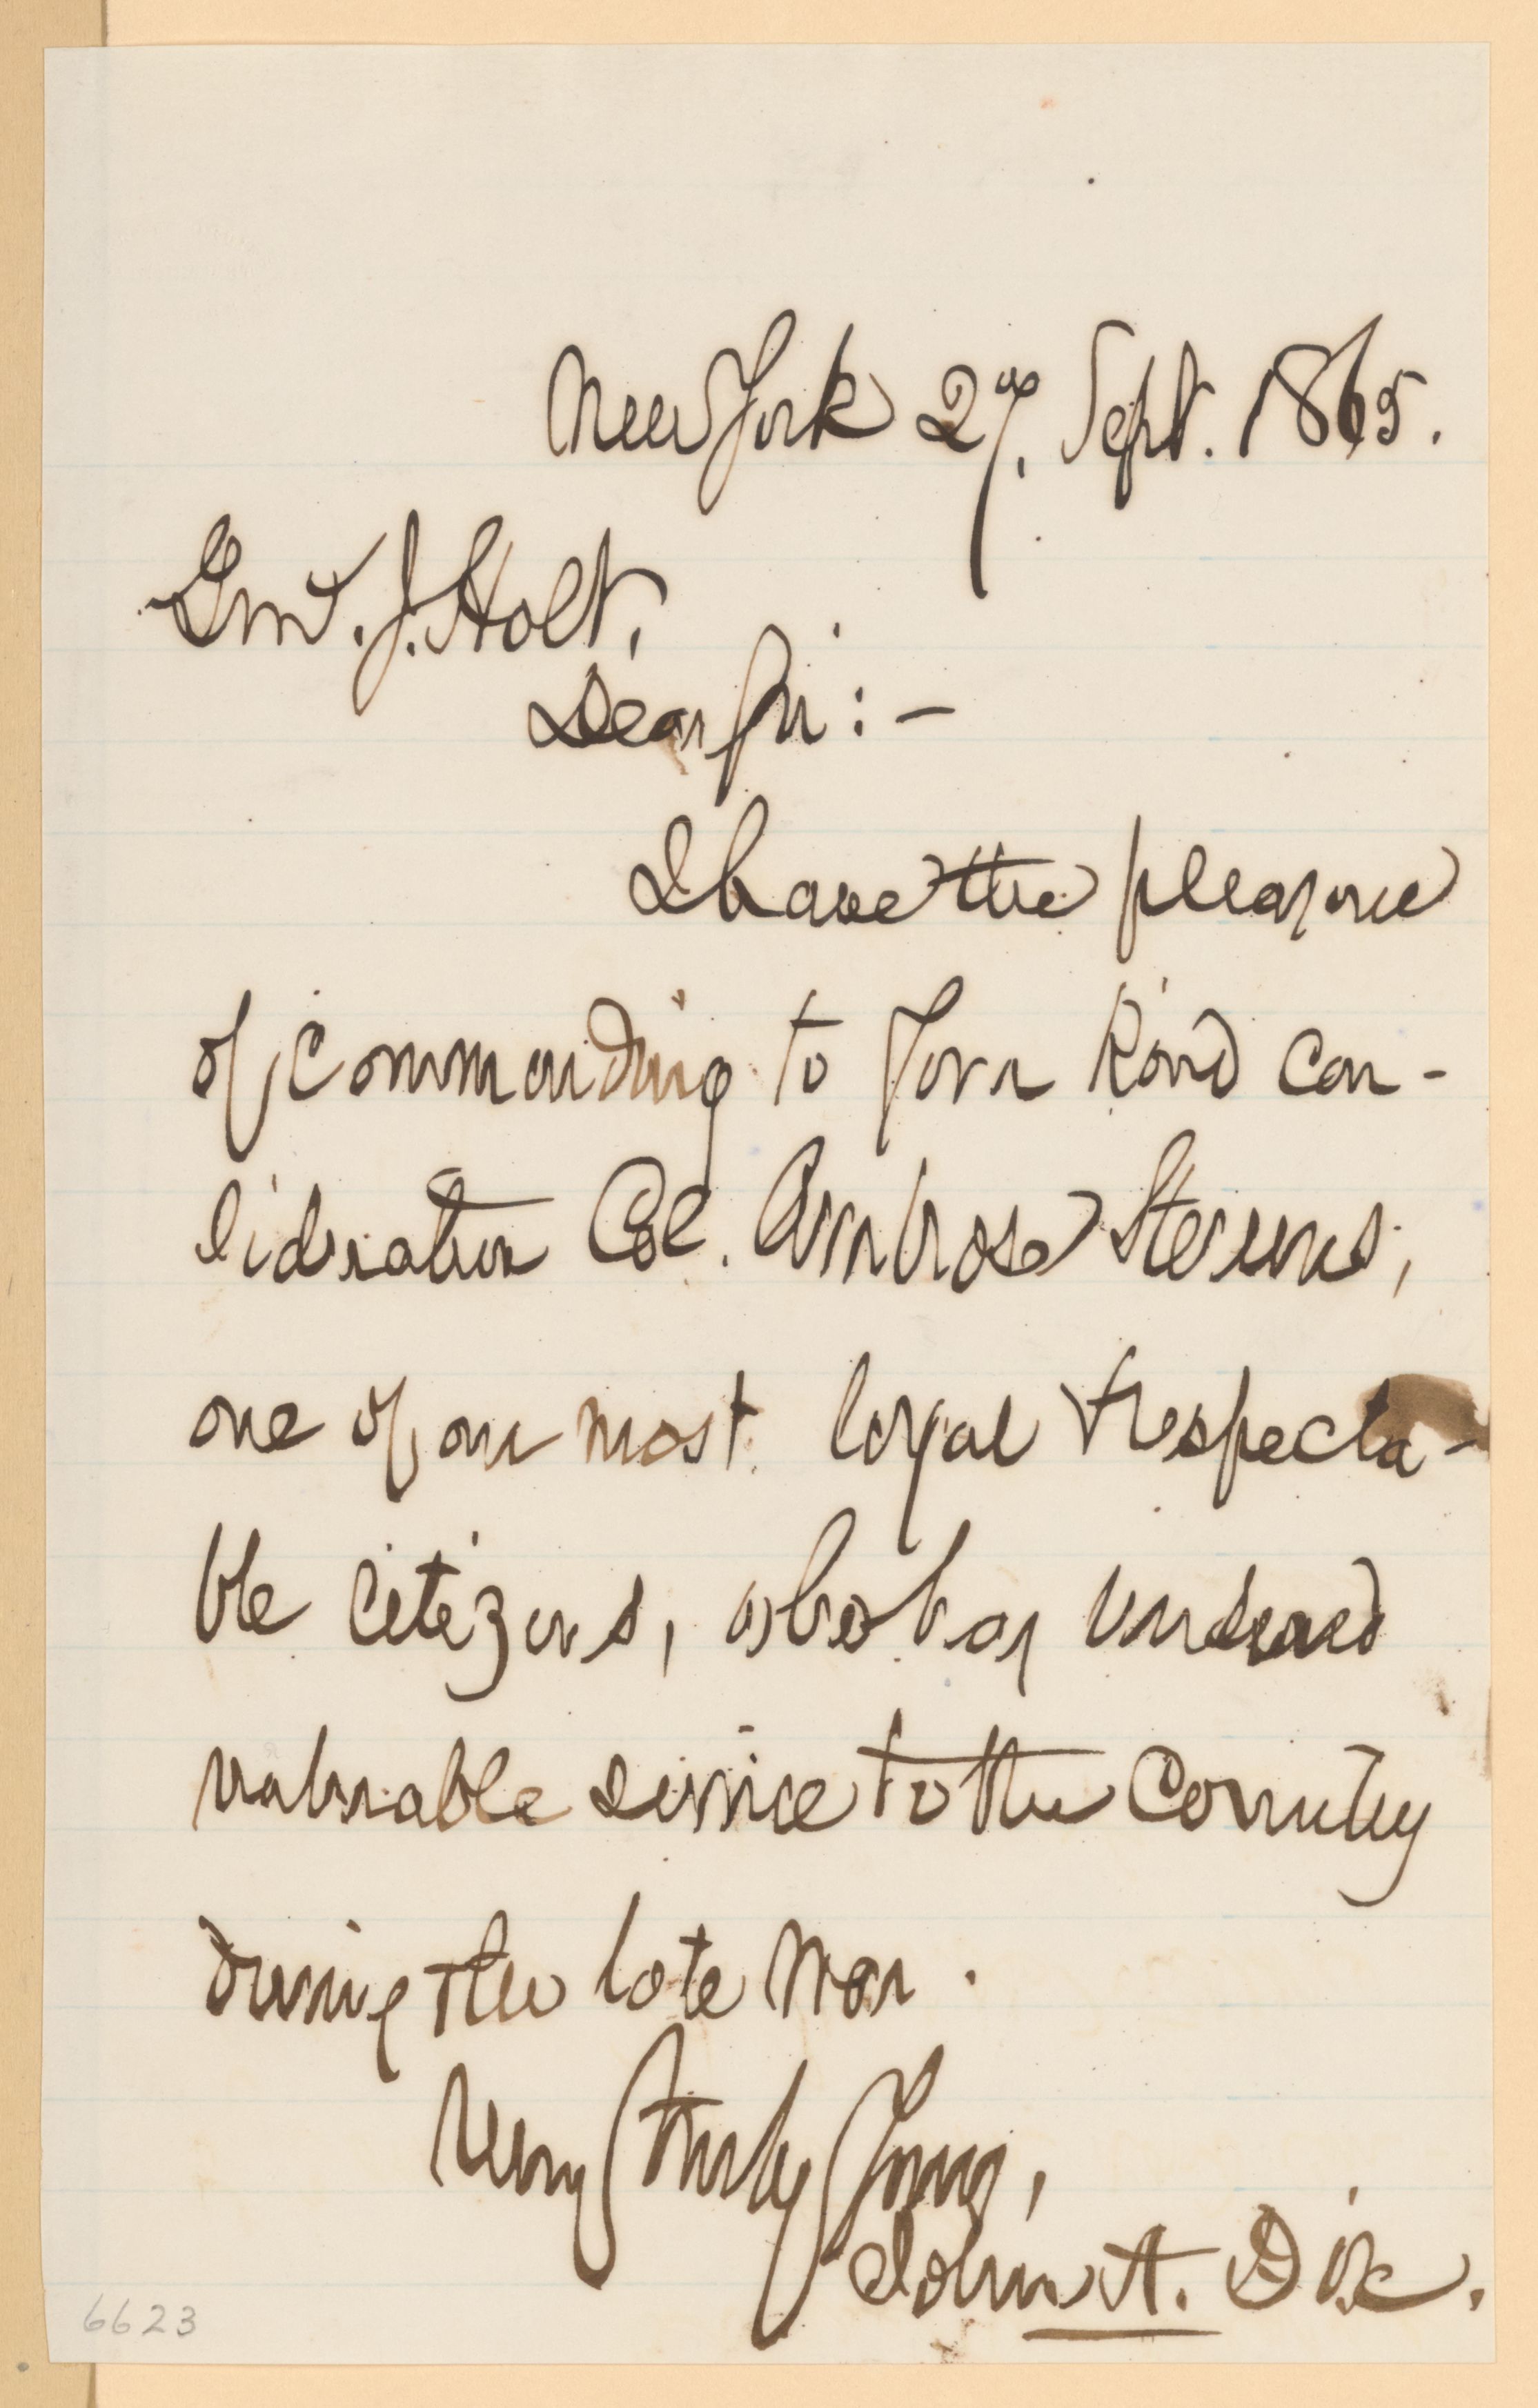 New York 27. Sept. 1865.
Genl. J. Holt,
Dear Sir: -
I have the pleasure
of commending to your kind con-
sideration Col. Ambrose Stevens,
one of our most loyal & respecta-
ble citizens, who has rendered
valuable service to the Country
during the late war.
Very truly yours,
John A. Dix.
6623